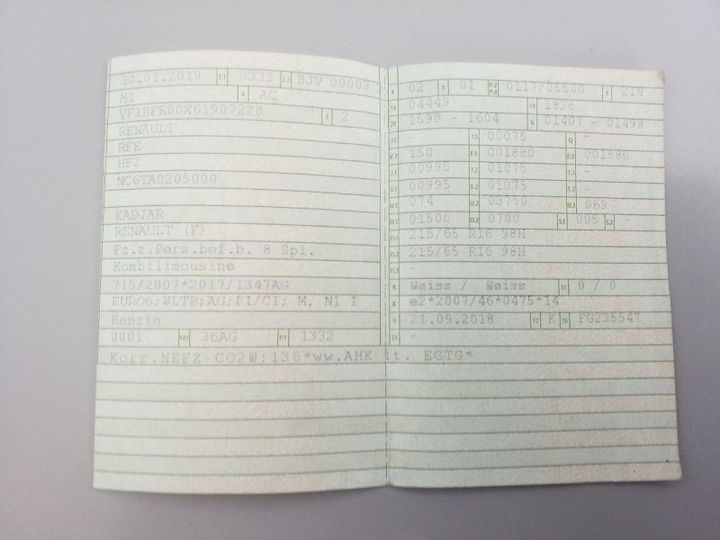 30.01.2019 2.1 3333 2.2 BJV 00003
M1 4 AC
VF1RFE00X61907228 3 2
RENAULT
RFE
HF2
NC6TA0205000
-
KADJAR
RENAULT (F)
Fz.z.Pers.bef.b. 8 Spl.
Kombilimousine
715/2007*2017/1347AG
EURO6;WLTP;AG;PI/CI; M, N1 I
Benzin
0001 36AG P.1 1332
Korr.NEFZ-CO2W:136*ww.AHK lt. EGTG*
L 02 9 01 P.2 P.4 0117/05500 T 210
18 04449 19 1836
20 1598 - 1604 G 01407 - 01498
12 - 13 00075 Q -
V.7 150 F.1 001880 F.2 001880
7.1 00995 7.2 01075 7.3 -
8.1 00995 8.2 01075 8.3 -
U.1 074 U.2 03750 U.3 069
O.1 01500 O.2 0700 S.1 005 S.2 -
15.1 215/65 R16 98H
15.2 215/65 R16 98H
15.3 -
R Weiss / Weiss 11 0 / 0
K e2*2007/46*0475*14
6 21.09.2018 17 K 16 FG235547
21 -